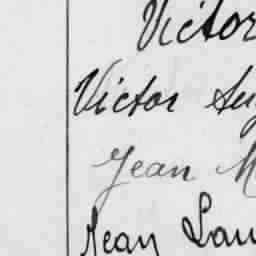 Victor
Victor Aug
Jean M
Jean Lau